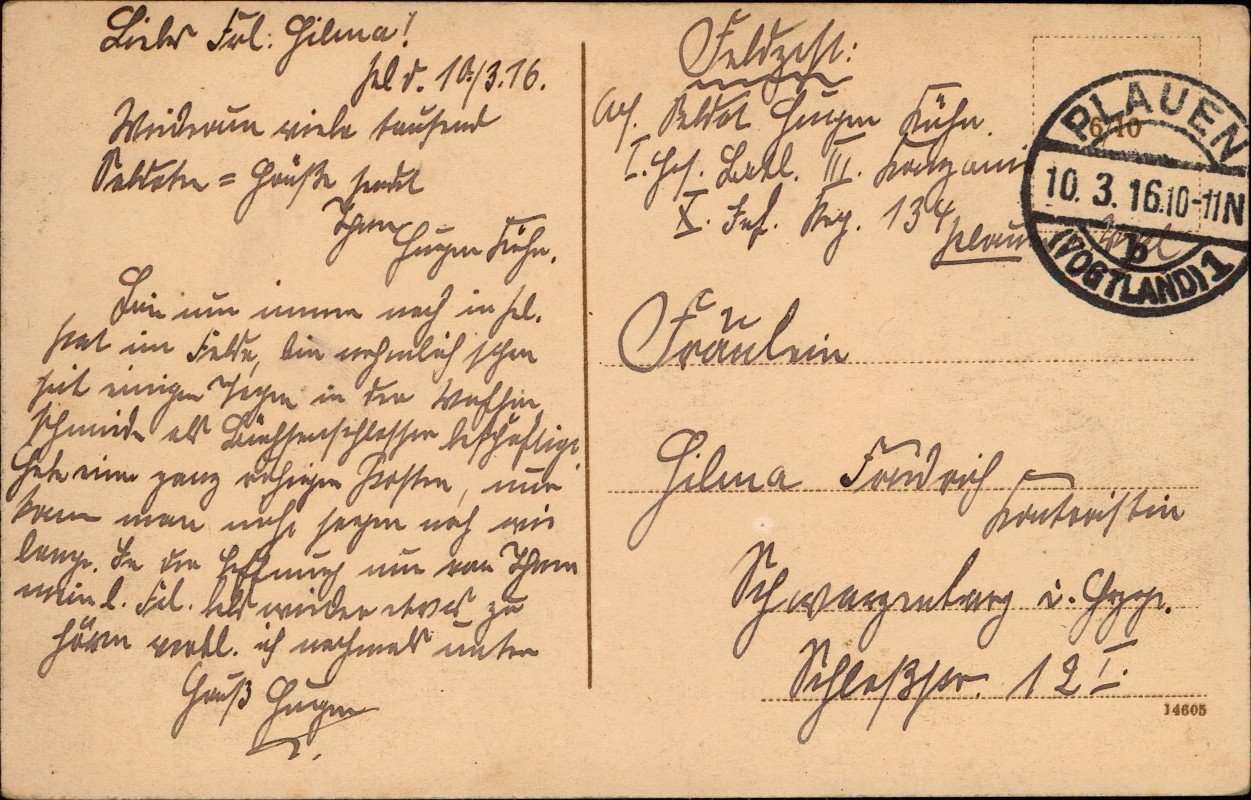 Liebes Frl. Hilma!
Pl. d. 10./3.16.
Wiederum viele tausend
Soldaten = Grüße sendet
Ihnen
Eugen Kühn.
Bin nun immer noch in Pl.
statt im Felde, bin nehmlich schon
seit einigen Tagen in der Waffen
schmiede als Büchsenschlosser beschäftigt
habe einen ganz ruhigen Posten, nur
kann man nicht sagen noch wie
lange. In der Hoffnung nun von Ihnen
mein l. Frl. bald wieder etwas zu
hören verbl. ich nochmals unter
Gruß Eugen
Feldpost:
Abs. Soldat Eugen Kühn.
I. Ers. Batl. III. Kompanie
X. Inf. Reg. 134
Plauen
6 10
PLAUEN
10. 3. 16.10-11N
b
(VOGTLAND) 1
Fräulein
Hilma Friedrich
Kontoristin
Schwarzenberg i. Erzge.
Schloßstr. 12 I.
14605